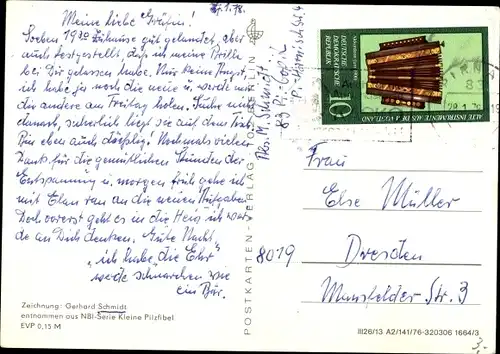 27.1.78.
Meine liebe Gräfin!
Soeben 19²⁰ Zuhause gut gelandet, aber
auch festgestellt, daß ich meine Brille
bei Dir gelassen habe. Nur keine Angst,
ich habe ja noch die neue u. werde mir
die andere am Freitag holen. Suche nicht
danach, sicherlich liegt sie auf dem
Bin eben auch Nochmals vielen
Dank für die gemütlichen Stunden der
Entspannung u. morgen früh gehe ich
mit Elan ran an die neuen Aufgaben
Doch vorerst geht es in die Heia, ich wer-
de an Dich denken. Gute Nacht
„ich habe die Ehr"
werde schnarchen wie
ein Bär.
Zeichnung: Gerhard Schmidt
entnommen aus NBI-Serie Kleine Pilzfibel
EVP 0,15 M
POSTKARTEN-VERLAG
Abs. M. Schmidt
83 Pi-Copitz
ALTE INSTRUMENTE AUS DEM VOGTLAND
Akkordeon (um 1900)
DEUTSCHE
DEMOKRATISCHE
REPUBLIK
10
PIRNA
83
28.1.78
Frau
Else Müller
8019
Dresden
Mansfelder Str. 3
III/26/13 A2/141/76-320306 1664/3
3,-